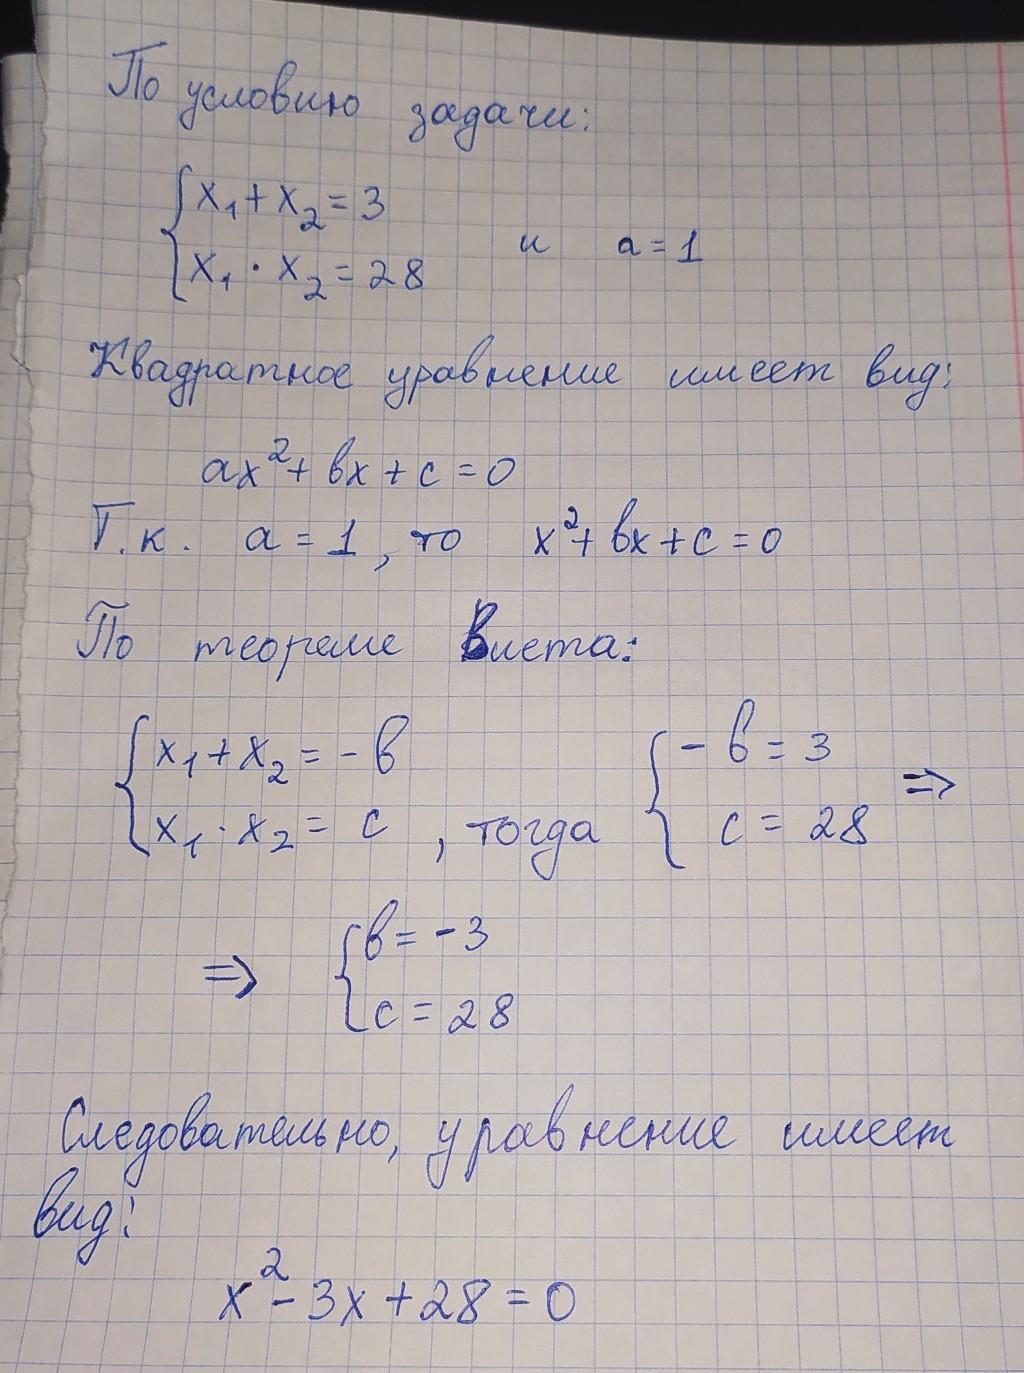 По условию задачи:
{x₁ + x₂ = 3
{x₁ · x₂ = 28 и a = 1
Квадратное уравнение имеет вид:
ax² + bx + c = 0
Т.к. a = 1, то x² + bx + c = 0
По теореме Виета:
{x₁ + x₂ = - b
{x₁ · x₂ = c , тогда {- b = 3
{c = 28 =>
=> {b = - 3
{c = 28
Следовательно, уравнение имеет
вид:
x² - 3x + 28 = 0